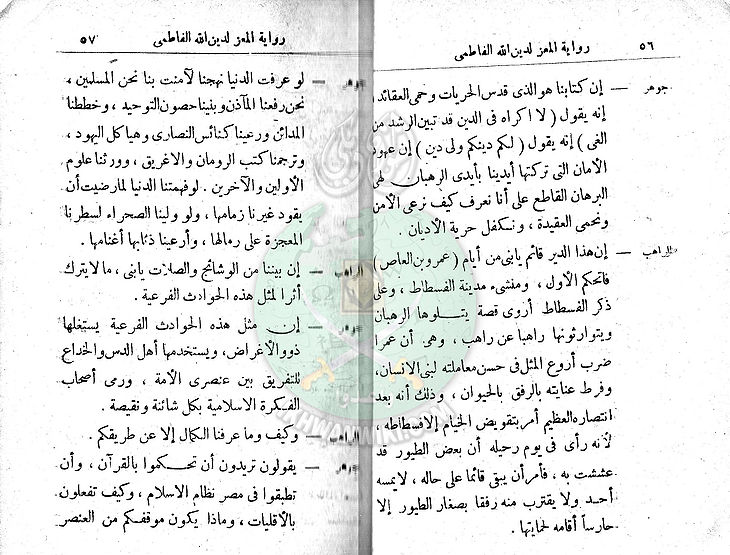 ٥٦ رواية المعز لدين الله الفاطمى
جوهر — إن كتابنا هو الذى قدس الحريات وحمى العقائد
إنه يقول ( لا اكراه فى الدين قد تبين الرشد من
الغى ) إنه يقول ( لكم دينكم ولى دين ) إن عهود
الأمان التى تركتها أيدينا بأيدى الرهبان لهى
البرهان القاطع على أنا نعرف كيف نرعى الأمن
ونحمى العقيدة ، ونكفل حرية الأديان .
الراهب — إن هذا الدير قائم يابنى من أيام ( عمرو بن العاص )
فاتحكم الأول ، ومنشىء مدينة الفسطاط ، وعلى
ذكر الفسطاط أروى قصة يتلوها الرهبان
ويتوارثونها راهبا عن راهب ، وهى أن عمرا
ضرب أروع المثل فى حسن معاملته لبنى الانسان،
وفرط عنايته بالرفق بالحيوان ، وذلك أنه بعد
انتصاره العظيم أمر بتقويض الخيام إلا فسطاطه ،
لأنه رأى فى يوم رحيله أن بعض الطيور قد
عششت به ، فأمر أن يبقى قائما على حاله ، لا يمسه
أحد ولا يقترب منه رفقا بصغار الطيور إلا
حارساً أقامه لحمايتها .
رواية المعز لدين الله الفاطمى ٥٧
جوهر — لو عرفت الدنيا نهجنا لآمنت بنا نحن المسلمين ،
نحن رفعنا المآذن وبنينا حصون التوحيد ، وخططنا
المدائن ورعينا كنائس النصارى وهياكل اليهود ،
وترجمنا كتب الرومان والاغريق ، وورثنا علوم
الأولين والآخرين . لو فهمتنا الدنيا لما رضيت أن
يقود غيرنا زمامها ، ولو ولينا الصحراء لسطرنا
المعجزة على رمالها ، وأرعينا ذئابها أغنامها .
الراهب — إن بيننا من الوشائج والصلات يابنى ، ما لا يترك
أثرا لمثل هذه الحوادث الفرعية .
جوهر — إن مثل هذه الحوادث الفرعية يستغلها
ذوو الأغراض، ويستخدمها أهل الدس والخداع
للتفريق بين عنصرى الأمة ، ورمى أصحاب
الفكرة الاسلامية بكل شائنة ونقيصة .
الراهب — وكيف وما عرفنا الكمال إلا عن طريقكم .
جوهر — يقولون تريدون أن تحكموا بالقرآن ، وأن
تطبقوا فى مصر نظام الاسلام ، وكيف تفعلون
بالأقليات ، وماذا يكون موقفكم من العنصر
IKHWANWIKI.COM